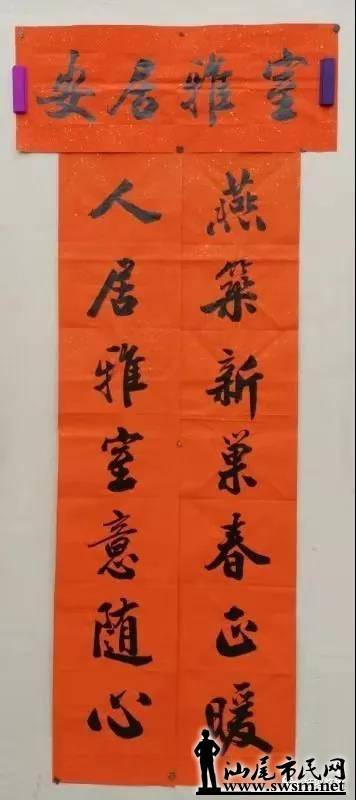 室雅居安
燕築新巢春正暖
人居雅室意随心
汕尾市民网
www.swsm.net